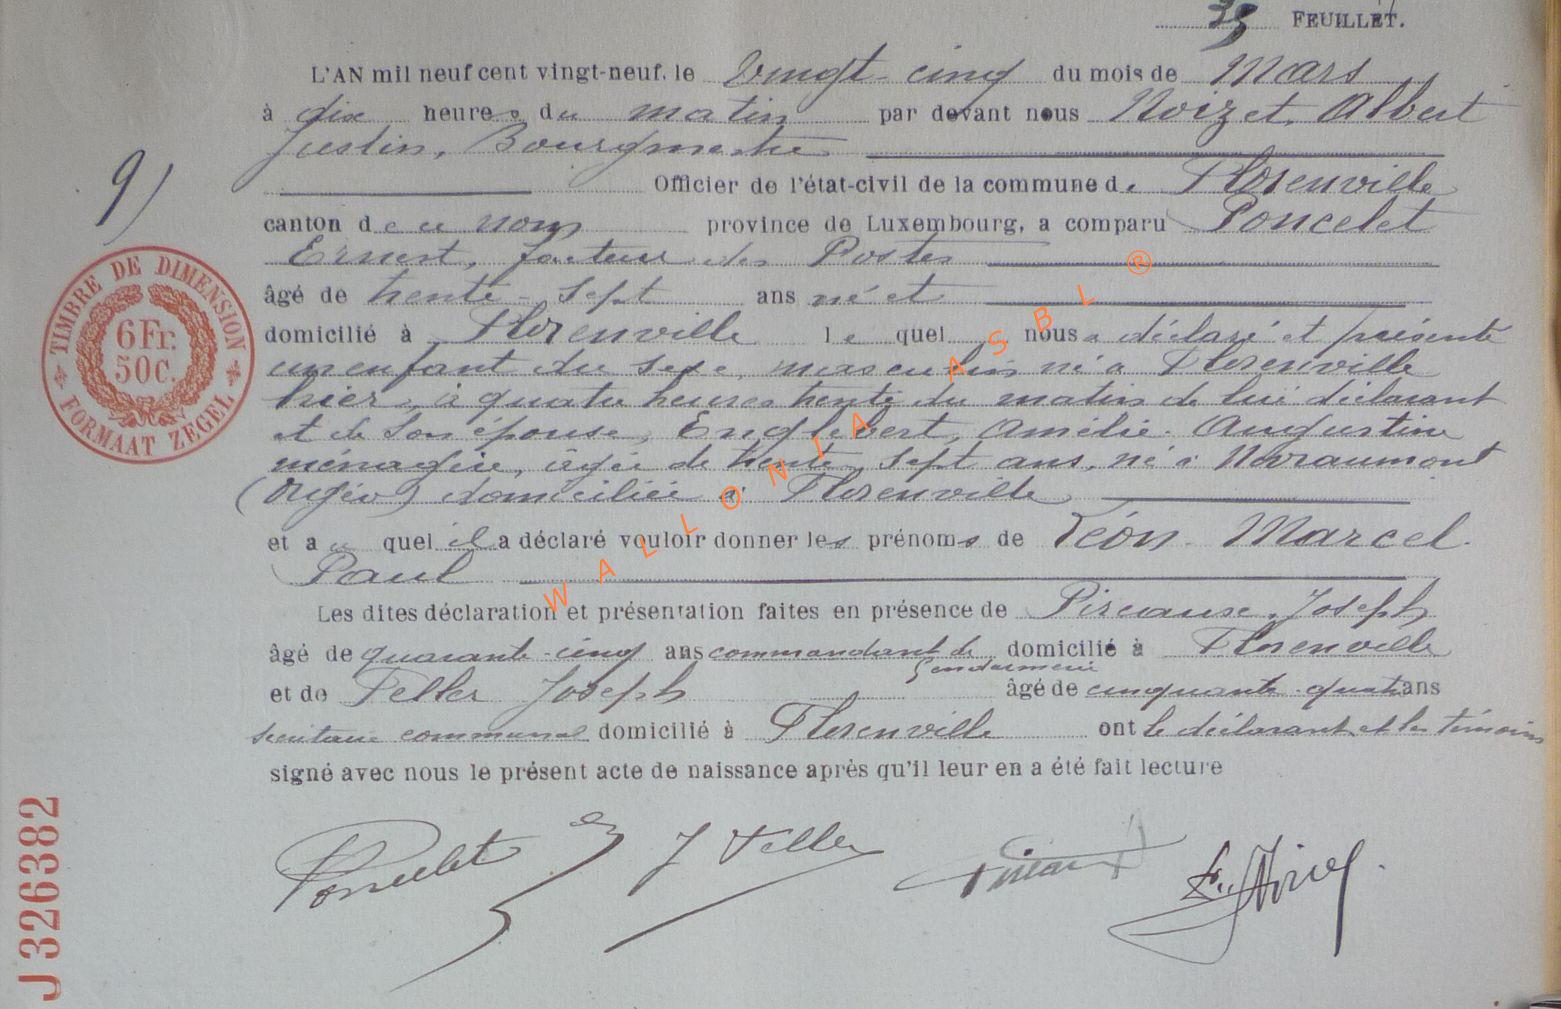 FEUILLET.
L'AN mil neuf cent vingt-neuf, le vingt-cinq du mois de Mars
à dix heures du matin par devant nous Noizet, Albert
Justin, Bourgmestre
Officier de l'état-civil de la commune de Florenville
canton de ce nom province de Luxembourg, a comparu Poncelet
Ernest, facteur des Postes
âgé de trente-sept ans né et
domicilié à Florenville le quel nous a déclaré et présenté
un enfant du sexe masculin né à Florenville
hier, à quatre heures trente du matin de lui déclarant
et de son épouse, Englebert, Amélie Augustine
ménagère, âgée de trente-sept ans, né à Nevraumont
(Orgéo) domiciliée à Florenville
et au quel il a déclaré vouloir donner les prénoms de Léon Marcel
Paul
Les dites déclaration et présentation faites en présence de Joseph
âgé de quarante-cinq ans commandant de gendarmerie domicilié à Florenville
et de Feller Joseph âgé de cinquante-quatre ans
secrétaire communal domicilié à Florenville ont le déclarant et les témoins
signé avec nous le présent acte de naissance après qu'il leur en a été fait lecture
Poncelet E J Feller
9)
TIMBRE DE DIMENSION
6 Fr.
50 C.
FORMAAT ZEGEL
J 326382
WALLONIA ASBL ®